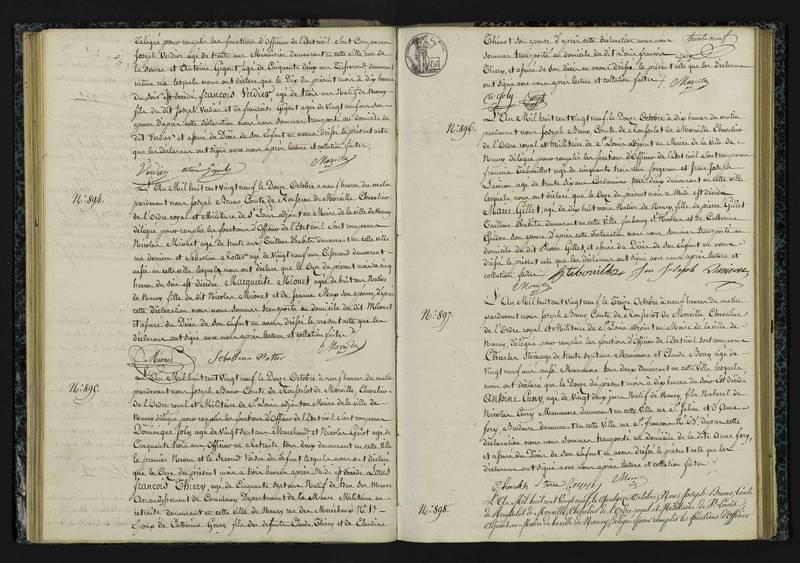 délégué pour remplir les fonctions d'Officier de l'Etat civil sont comparus
Joseph Verdier agé de trente six Menuisier demeurant en cette ville rue de
la Source et Antoine Gigout agé de Cinquante deux ans Tisserand demeurant
même rue, lesquels nous ont déclaré que le Dix du présent mois à dix heures
du soir est décédé François Verdier agé de trois ans Natif de Nancy
fils du dit Joseph Verdier et de françoise Gigout agée de vingt neuf ans son
épouse d'après cette déclaration nous nous sommes transporté au domicile du
dit Verdier et assuré du Décès de son Enfant en avons dressé le présent acte
que les déclarans ont signé avec nous après lecture et collation faites.
Verdier
Morville
N.° 894.
L'An Mil huit cent Vingt neuf le Douze Octobre à neuf heures du matin
pardevant nous Joseph Bruno Comte de Rousselot de Morville, Chevalier
de l'Ordre royal et Militaire de St Louis adjoint au Maire de la Ville de Nancy
délégué pour remplir les fonctions d'Officier de l'Etat civil sont comparus
Nicolas Mionet agé de trente six Tailleur d'habits demeurant en cette ville
rue derrière et Sébastien Rotter agé de Vingt neuf ans Tisserand demeurant
aussi en cette ville lesquels nous ont déclaré que le Onze du présent mois à cinq
heures du soir est décédée Marguerite Mionet agée de huit ans Native
de Nancy fille du dit Nicolas Mionet et de Jeanne son épouse, d'après
cette déclaration nous nous sommes transporté au domicile du dit Mionet
et assuré du Décès de son Enfant en avons dressé le présent acte que les
déclarans ont signé avec nous après lecture et collation faites
Mionet Sebastien Rotter Morville
N.° 895.
L'An Mil huit cent vingt neuf le Douze Octobre à neuf heures du matin
pardevant nous Joseph Bruno Comte de Rousselot de Morville, Chevalier
de l'Ordre royal et Militaire de St Louis adjoint au Maire de la ville de
Nancy délégué pour remplir les fonctions d'Officier de l'Etat civil sont comparus
Dominique Joly agé de Vingt sept ans Marchand et Nicolas agé de
Cinquante trois ans Officier en Retraite tous deux demeurant en cette Ville
le premier Neveu et le Second Voisin du défunt lesquels nous ont déclaré
que le Onze du présent mois à trois heures après Midi est décédé Louis
François Thiery, agé de Cinquante sept ans Natif de
Arrondissement de Commercy Département de la Meuse Militaire en
retraite demeurant en cette ville de Nancy rue des Maréchaux N.° 13
Epoux de Catherine Gény, fils des défunts Claude Thiery et de Claudine
trente neuf
Thénot son épouse d'après cette déclaration nous nous
sommes transporté au domicile du dit Louis françois
Thiery, et assuré de son Décès en avons dressé le présent acte que les déclarans
ont signé avec nous après lecture et collation faites
Joly Morville
N.° 896.
L'An Mil huit cent vingt neuf, le Douze Octobre à dix heures du matin
pardevant nous Joseph Bruno Comte de Rousselot de Morville Chevalier
de l'Ordre royal et Militaire de St Louis adjoint au Maire de la Ville de
Nancy délégué pour remplir les fonctions d'Officier de l'Etat civil sont comparus
françois agé de cinquante trois ans et Jean Joseph
agé de trente six ans Cordonnier tous deux demeurant en cette ville
lesquels nous ont déclaré que le Onze du présent mois à Midi est décédée
Marie Gillet, agée de dix huit mois Native de Nancy, fille de pierre Gillet
Tailleur d'habits demeurant en cette Ville faubourg St Nicolas et de Catherine
son épouse d'après cette déclaration nous nous sommes transporté au
domicile du dit Pierre Gillet, et assuré du Décès de son Enfant en avons
dressé le présent acte que les déclarans ont signé avec nous après lecture et
collation faites
Jean Joseph
Morville
N.° 897.
L'An Mil huit cent vingt neuf, le Treize Octobre à neuf heures du matin
pardevant nous Joseph Bruno Comte de Rousselot de Morville Chevalier
de l'Ordre royal et Militaire de St Louis adjoint au Maire de la ville de
Nancy, délégué pour remplir les fonctions d'Officier de l'Etat civil sont comparus
Charles agé de trente sept ans Manoeuvre et Claude agé de
Vingt neuf ans aussi Manoeuvre tous deux demeurant en cette Ville lesquels
nous ont déclaré que le Douze du présent mois à dix heures du soir est décédé
Antoine Cuny, agé de Vingt deux jours Natif de Nancy, fils Naturel de
Nicolas Cuny Manoeuvre demeurant en cette Ville rue St Julien et d'Anne
Jory, demeurant en cette Ville rue St françois N.° D'après cette
déclaration nous nous sommes transporté au domicile de la dite Anne Jory,
et assuré du Décès de son Enfant en avons dressé le présent acte que les
déclarans ont signé avec nous après lecture et collation faites
Morville
N.° 898.
L'An Mil huit cent vingt neuf, le Quatorze Octobre, Nous Joseph Bruno, Comte
de Rousselot de Morville, Chevalier de l'Ordre royal et Militaire de St Louis
Adjoint au Maire de la ville de Nancy, délégué pour remplir les fonctions d'Officier